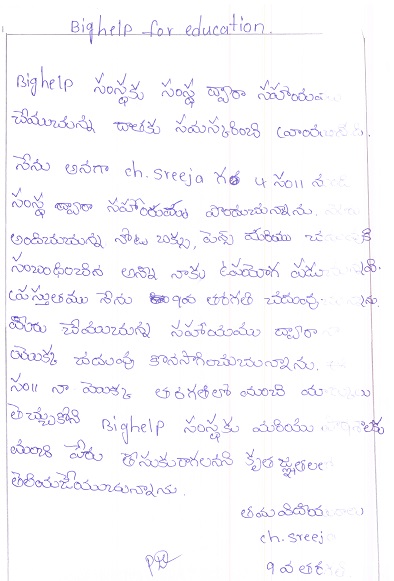 Bighelp for education.
Bighelp సంస్థకు సంస్థ ద్వారా సహాయము
చేయుచున్న దాతకు నమస్కరించి వ్రాయునది.
నేను అనగా ch. sreeja గత 4 సం॥ నుండి
సంస్థ ద్వారా సహాయము పొందుచున్నాను.
అందించుచున్న నోటు బుక్స్, పెన్స్ మరియు
సంబంధించిన అన్నీ నాకు ఉపయోగ పడు
ప్రస్తుతము నేను 9వ తరగతి చదువు
మీరు చేయుచున్న సహాయము ద్వారా
యొక్క చదువు కొనసాగించుచున్నాను.
సం॥ నా యొక్క తరగతిలో మంచి
తెచ్చుకొని Bighelp సంస్థకు మరియు
మంచి పేరు తీసుకురాగలనని కృతజ్ఞతలు
తెలియజేయుచున్నాను.
తమ విధేయ
ch. sreeja
9 వ తర